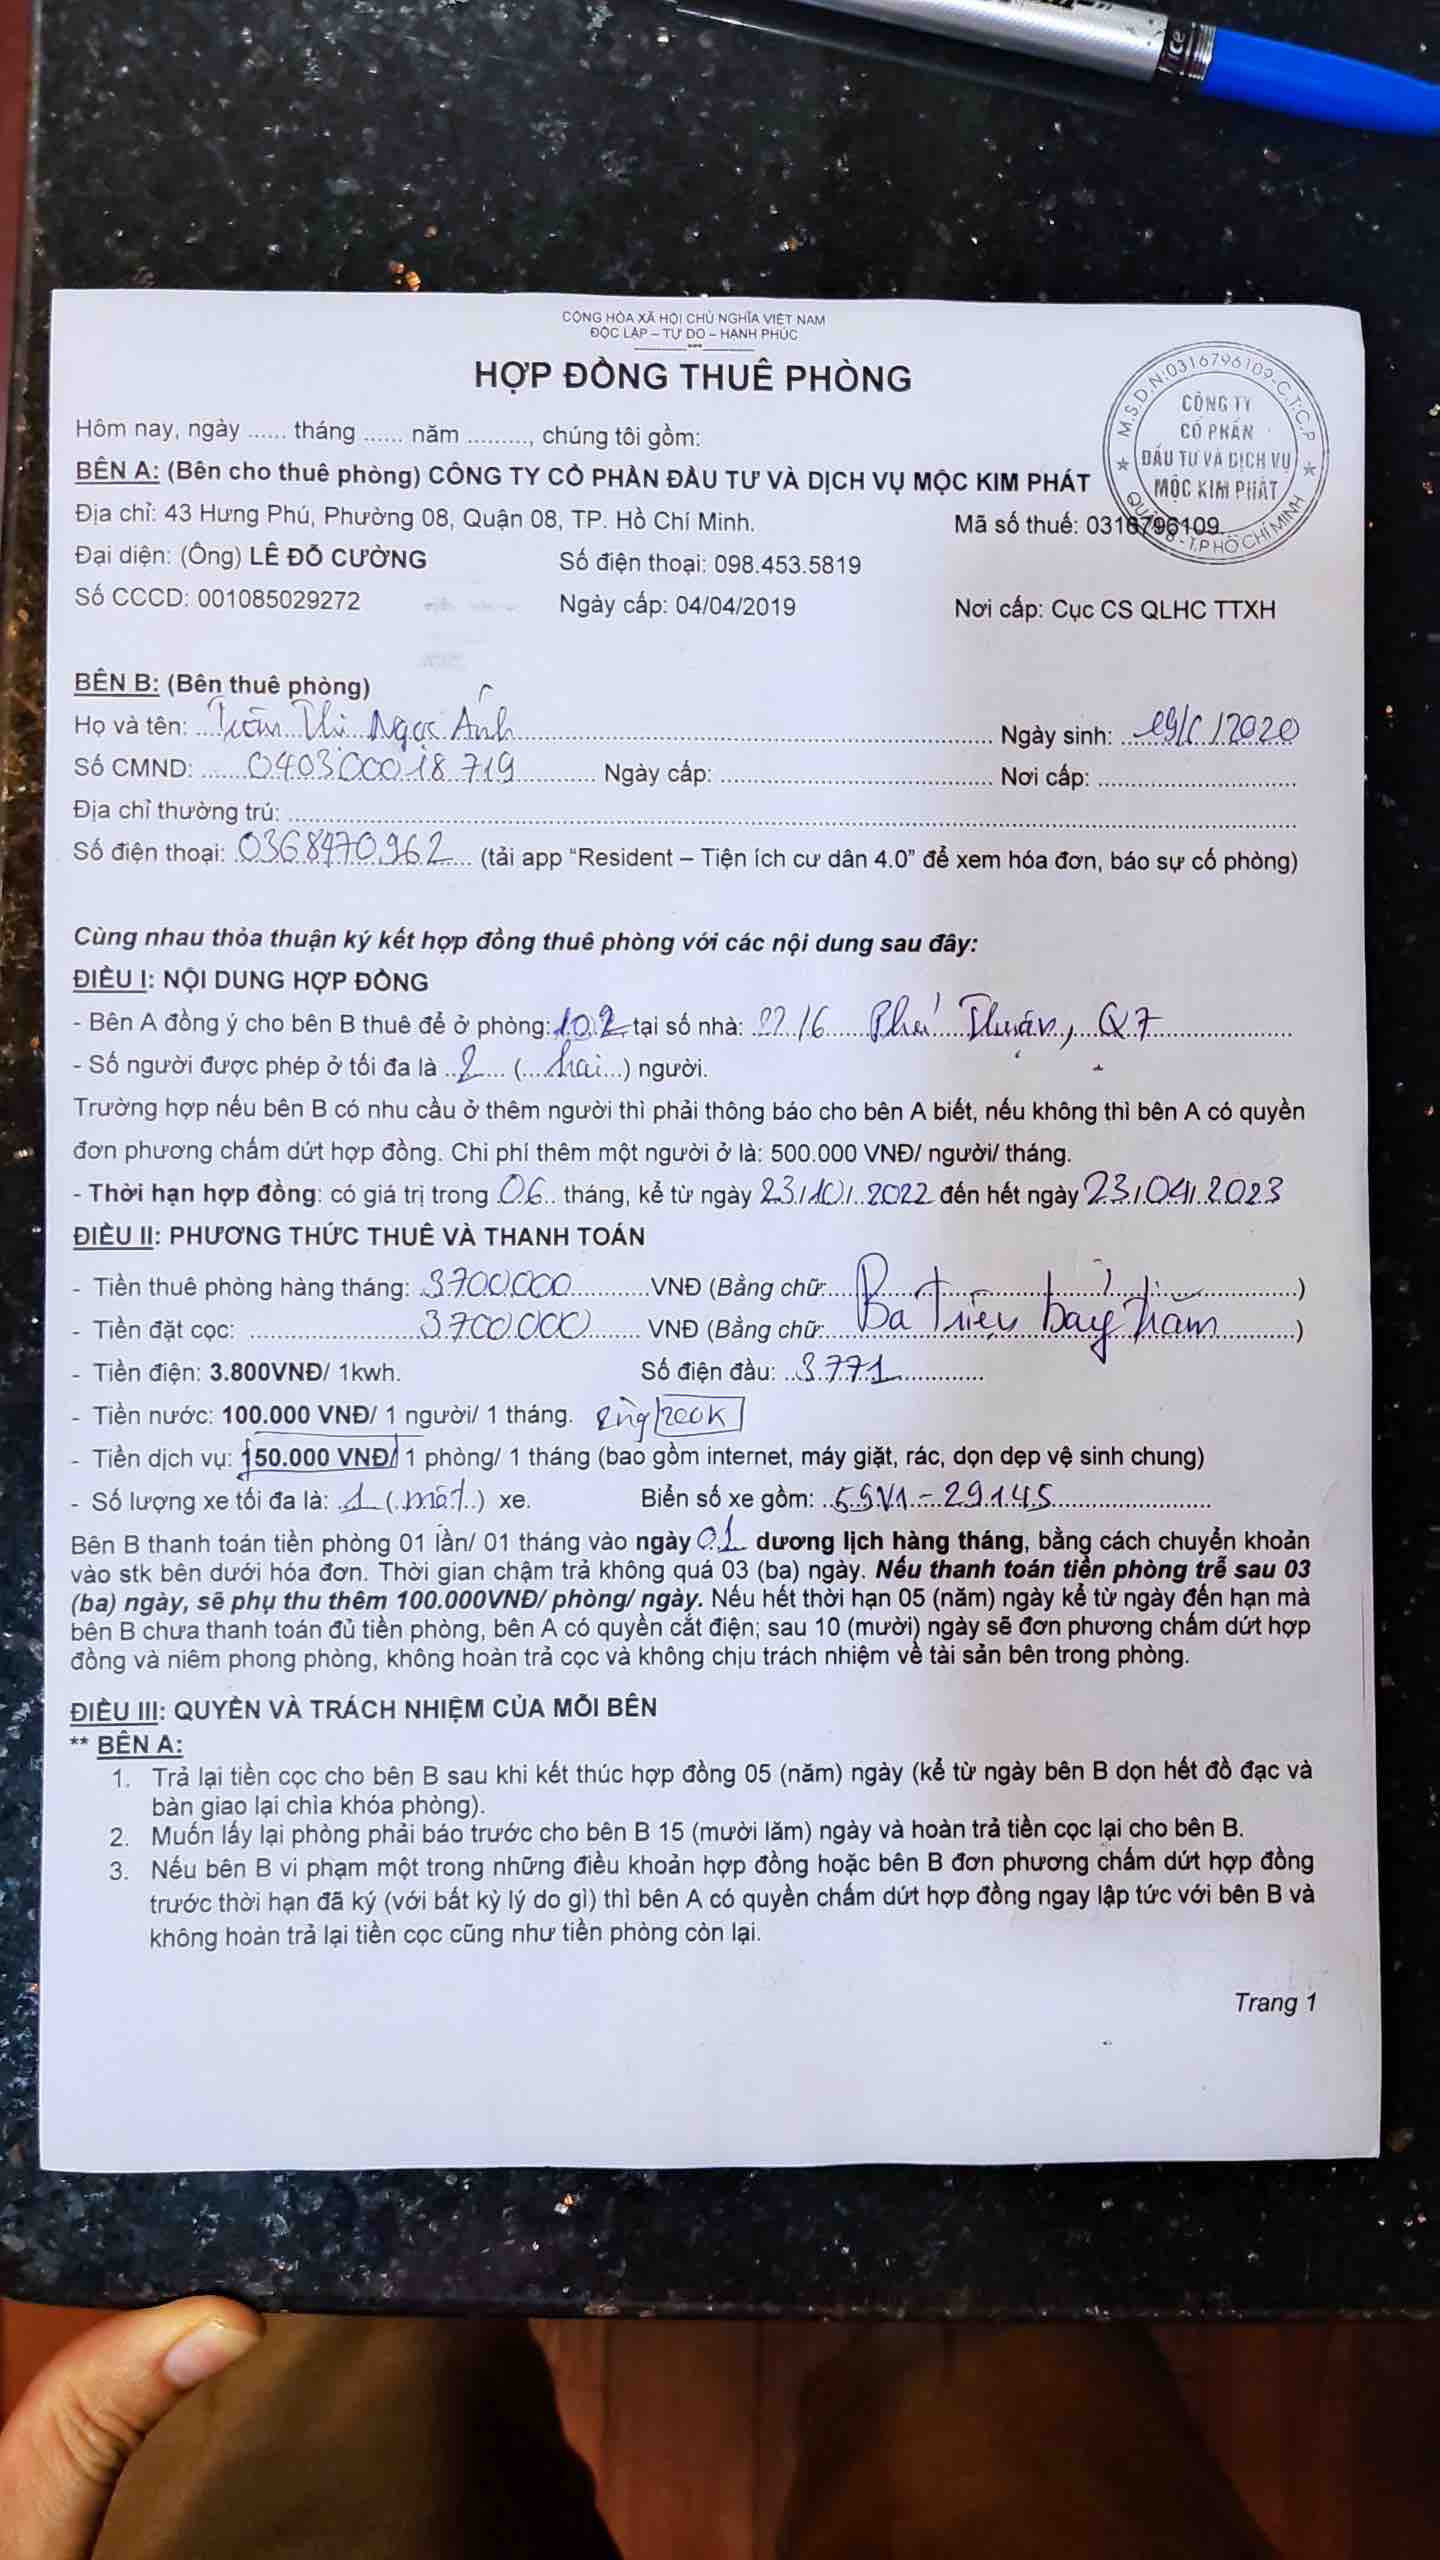 CỘNG HÒA XÃ HỘI CHỦ NGHĨA VIỆT NAM
ĐỘC LẬP – TỰ DO – HẠNH PHÚC
HỢP ĐỒNG THUÊ PHÒNG
M.S.D.N:0316796109-C.T.C.P
CÔNG TY
CỔ PHẦN
ĐẦU TƯ VÀ DỊCH VỤ
MỘC KIM PHÁT
QUẬN 8 - T.P HỒ CHÍ MINH
Hôm nay, ngày ...... tháng ...... năm ........., chúng tôi gồm:
BÊN A: (Bên cho thuê phòng) CÔNG TY CỔ PHẦN ĐẦU TƯ VÀ DỊCH VỤ MỘC KIM PHÁT
Địa chỉ: 43 Hưng Phú, Phường 08, Quận 08, TP. Hồ Chí Minh. Mã số thuế: 0316796109
Đại diện: (Ông) LÊ ĐỖ CƯỜNG Số điện thoại: 098.453.5819
Số CCCD: 001085029272 Ngày cấp: 04/04/2019 Nơi cấp: Cục CS QLHC TTXH
BÊN B: (Bên thuê phòng)
Họ và tên: Trần Thị Ngọc Ánh Ngày sinh: /2020
Số CMND: 040300018719 Ngày cấp: Nơi cấp:
Địa chỉ thường trú:
Số điện thoại: 0368470962 (tải app “Resident – Tiện ích cư dân 4.0” để xem hóa đơn, báo sự cố phòng)
Cùng nhau thỏa thuận ký kết hợp đồng thuê phòng với các nội dung sau đây:
ĐIỀU I: NỘI DUNG HỢP ĐỒNG
- Bên A đồng ý cho bên B thuê để ở phòng: 102 tại số nhà: 22/6 Phú Thuận, Q7
- Số người được phép ở tối đa là 2 (hai) người.
Trường hợp nếu bên B có nhu cầu ở thêm người thì phải thông báo cho bên A biết, nếu không thì bên A có quyền
đơn phương chấm dứt hợp đồng. Chi phí thêm một người ở là: 500.000 VNĐ/ người/ tháng.
- Thời hạn hợp đồng: có giá trị trong 06 tháng, kể từ ngày 23/10/2022 đến hết ngày 23/04/2023
ĐIỀU II: PHƯƠNG THỨC THUÊ VÀ THANH TOÁN
- Tiền thuê phòng hàng tháng: 3700.000 VNĐ (Bằng chữ: )
- Tiền đặt cọc: 3700000 VNĐ (Bằng chữ: Ba triệu bảy trăm )
- Tiền điện: 3.800VNĐ/ 1kwh. Số điện đầu: 3771
- Tiền nước: 100.000 VNĐ/ 1 người/ 1 tháng. 2ng/200K
- Tiền dịch vụ: 150.000 VNĐ/ 1 phòng/ 1 tháng (bao gồm internet, máy giặt, rác, dọn dẹp vệ sinh chung)
- Số lượng xe tối đa là: 1 (một) xe. Biển số xe gồm: 59V1-29145
Bên B thanh toán tiền phòng 01 lần/ 01 tháng vào ngày 01 dương lịch hàng tháng, bằng cách chuyển khoản
vào stk bên dưới hóa đơn. Thời gian chậm trả không quá 03 (ba) ngày. Nếu thanh toán tiền phòng trễ sau 03
(ba) ngày, sẽ phụ thu thêm 100.000VNĐ/ phòng/ ngày. Nếu hết thời hạn 05 (năm) ngày kể từ ngày đến hạn mà
bên B chưa thanh toán đủ tiền phòng, bên A có quyền cắt điện; sau 10 (mười) ngày sẽ đơn phương chấm dứt hợp
đồng và niêm phong phòng, không hoàn trả cọc và không chịu trách nhiệm về tài sản bên trong phòng.
ĐIỀU III: QUYỀN VÀ TRÁCH NHIỆM CỦA MỖI BÊN
** BÊN A:
1. Trả lại tiền cọc cho bên B sau khi kết thúc hợp đồng 05 (năm) ngày (kể từ ngày bên B dọn hết đồ đạc và
bàn giao lại chìa khóa phòng).
2. Muốn lấy lại phòng phải báo trước cho bên B 15 (mười lăm) ngày và hoàn trả tiền cọc lại cho bên B.
3. Nếu bên B vi phạm một trong những điều khoản hợp đồng hoặc bên B đơn phương chấm dứt hợp đồng
trước thời hạn đã ký (với bất kỳ lý do gì) thì bên A có quyền chấm dứt hợp đồng ngay lập tức với bên B và
không hoàn trả lại tiền cọc cũng như tiền phòng còn lại.
Trang 1